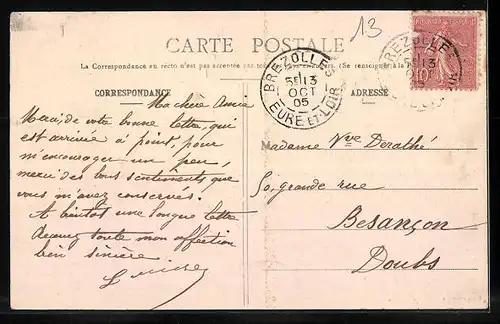 13
CARTE POSTALE
La Correspondance au recto n'est pas acceptée par tous les pays étrangers. (Se renseigner à la
CORRESPONDANCE
ADRESSE
BREZOLLES
5E 13
OCT
05
EURE-ET-LOIR
BREZOLLES
5E 13
Ma chère Amie
Merci, de votre bonne lettre, qui
est arrivée à point, pour
m'encourager un peu,
merci des bons sentiments que
vous m'avez conservés.
A bientôt une longue lettre
toute mon affection
bien sincère
Madame Vve Derathé
50, grande rue
Besançon
Doubs